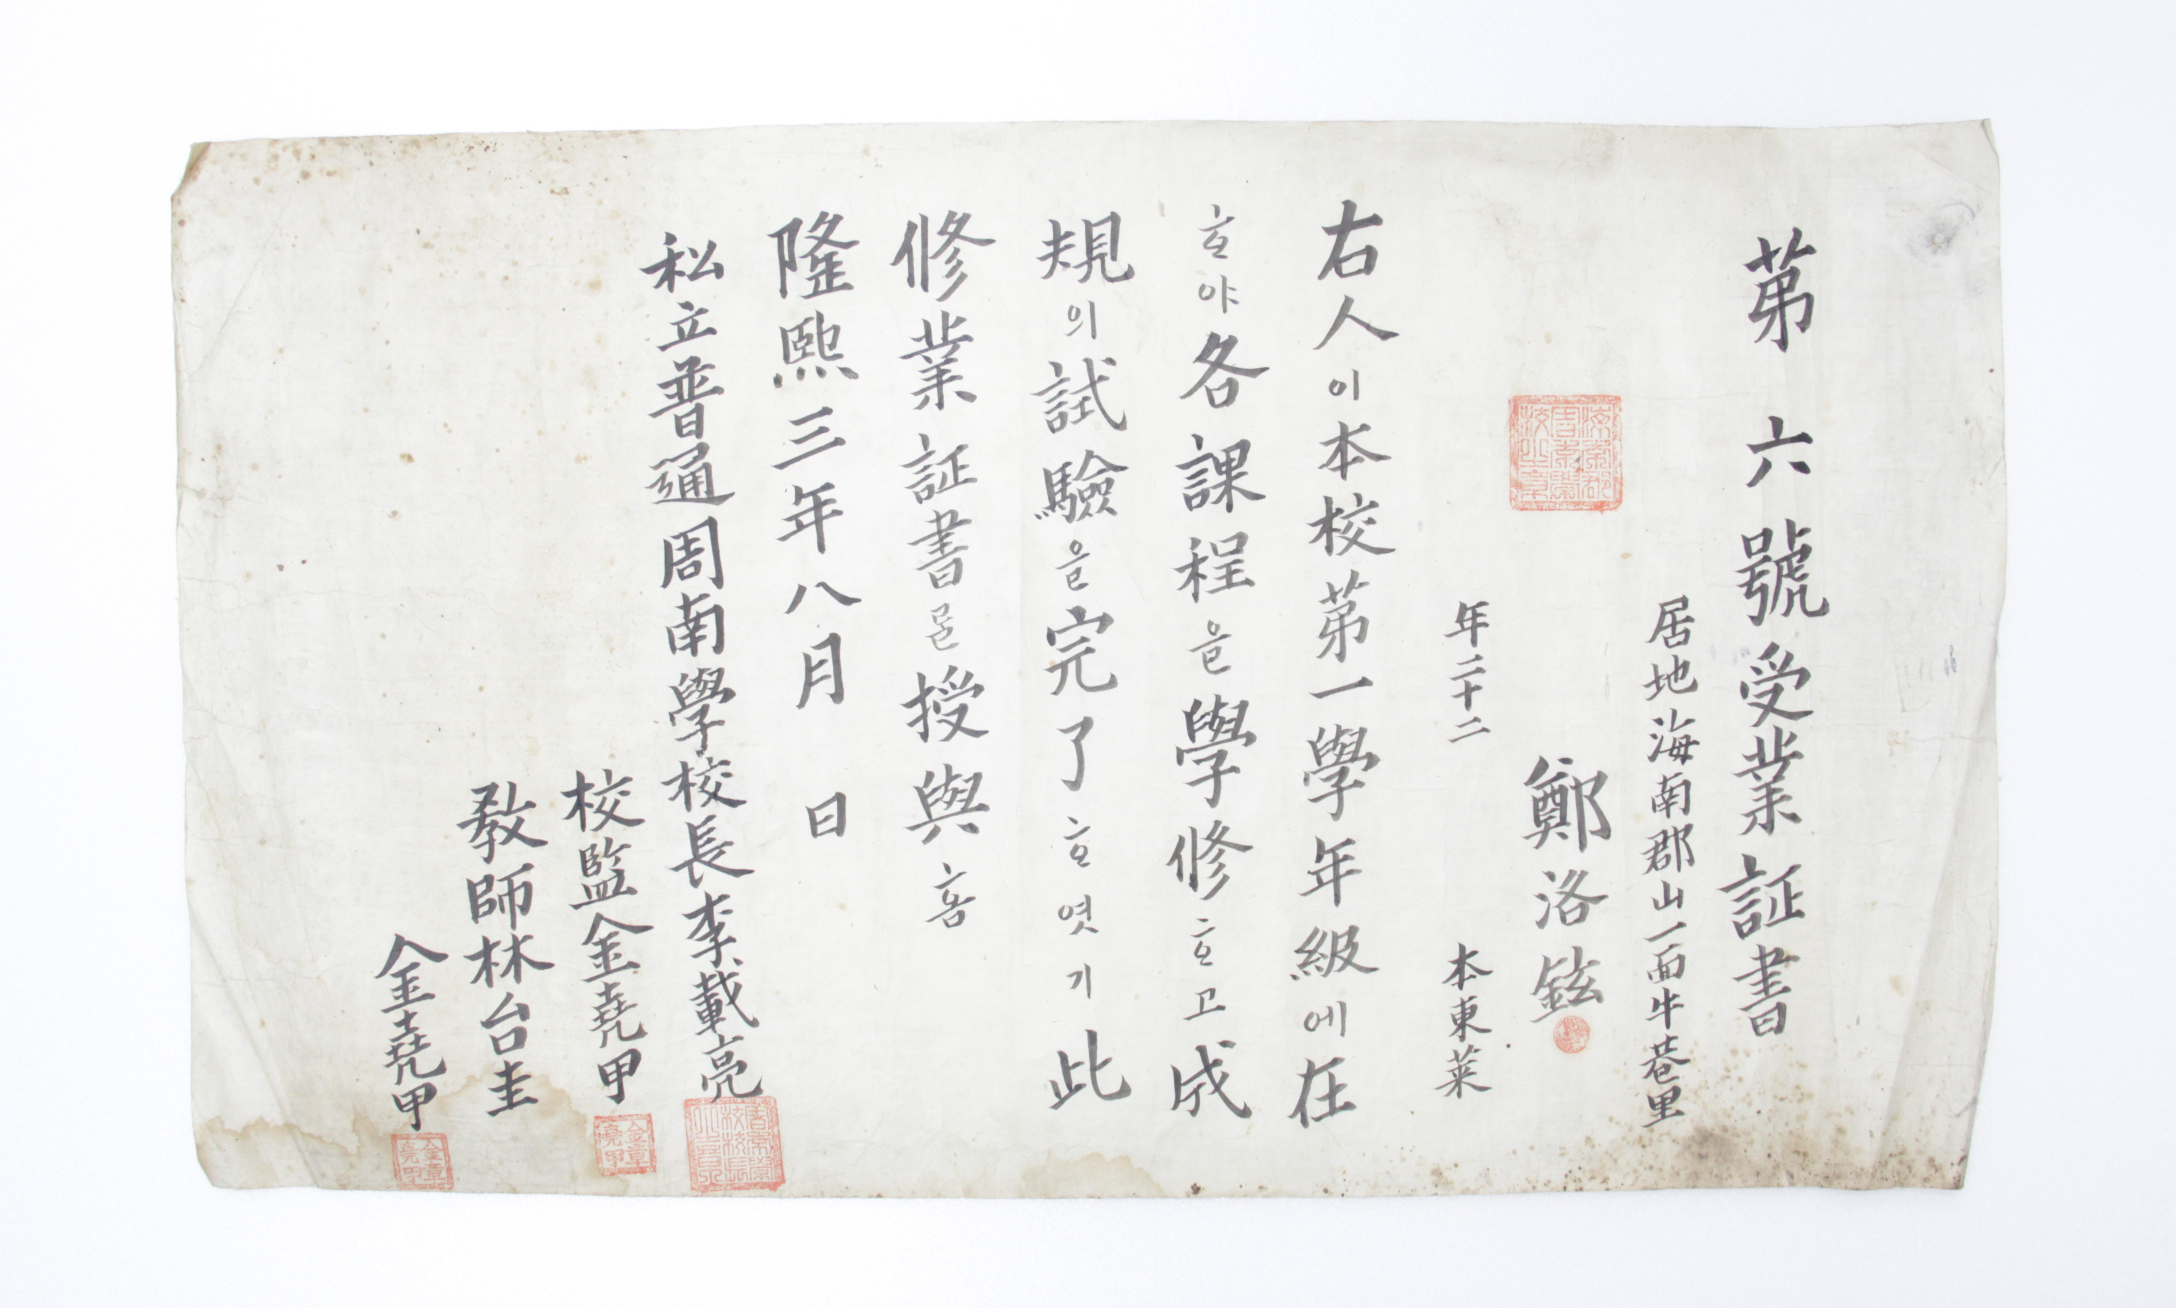 第六號受業証書
居地海南郡山一面牛巷里
鄭洛鉉
年二十二 本東萊
右人이本校第一學年級에在
ᄒᆞ야各課程을學修ᄒᆞ고成
規의試驗을完了ᄒᆞ엿기此
修業証書를授與홈
隆熙三年八月 日
私立普通周南學校長李載亮
校監金堯甲
敎師林台圭
金堯甲